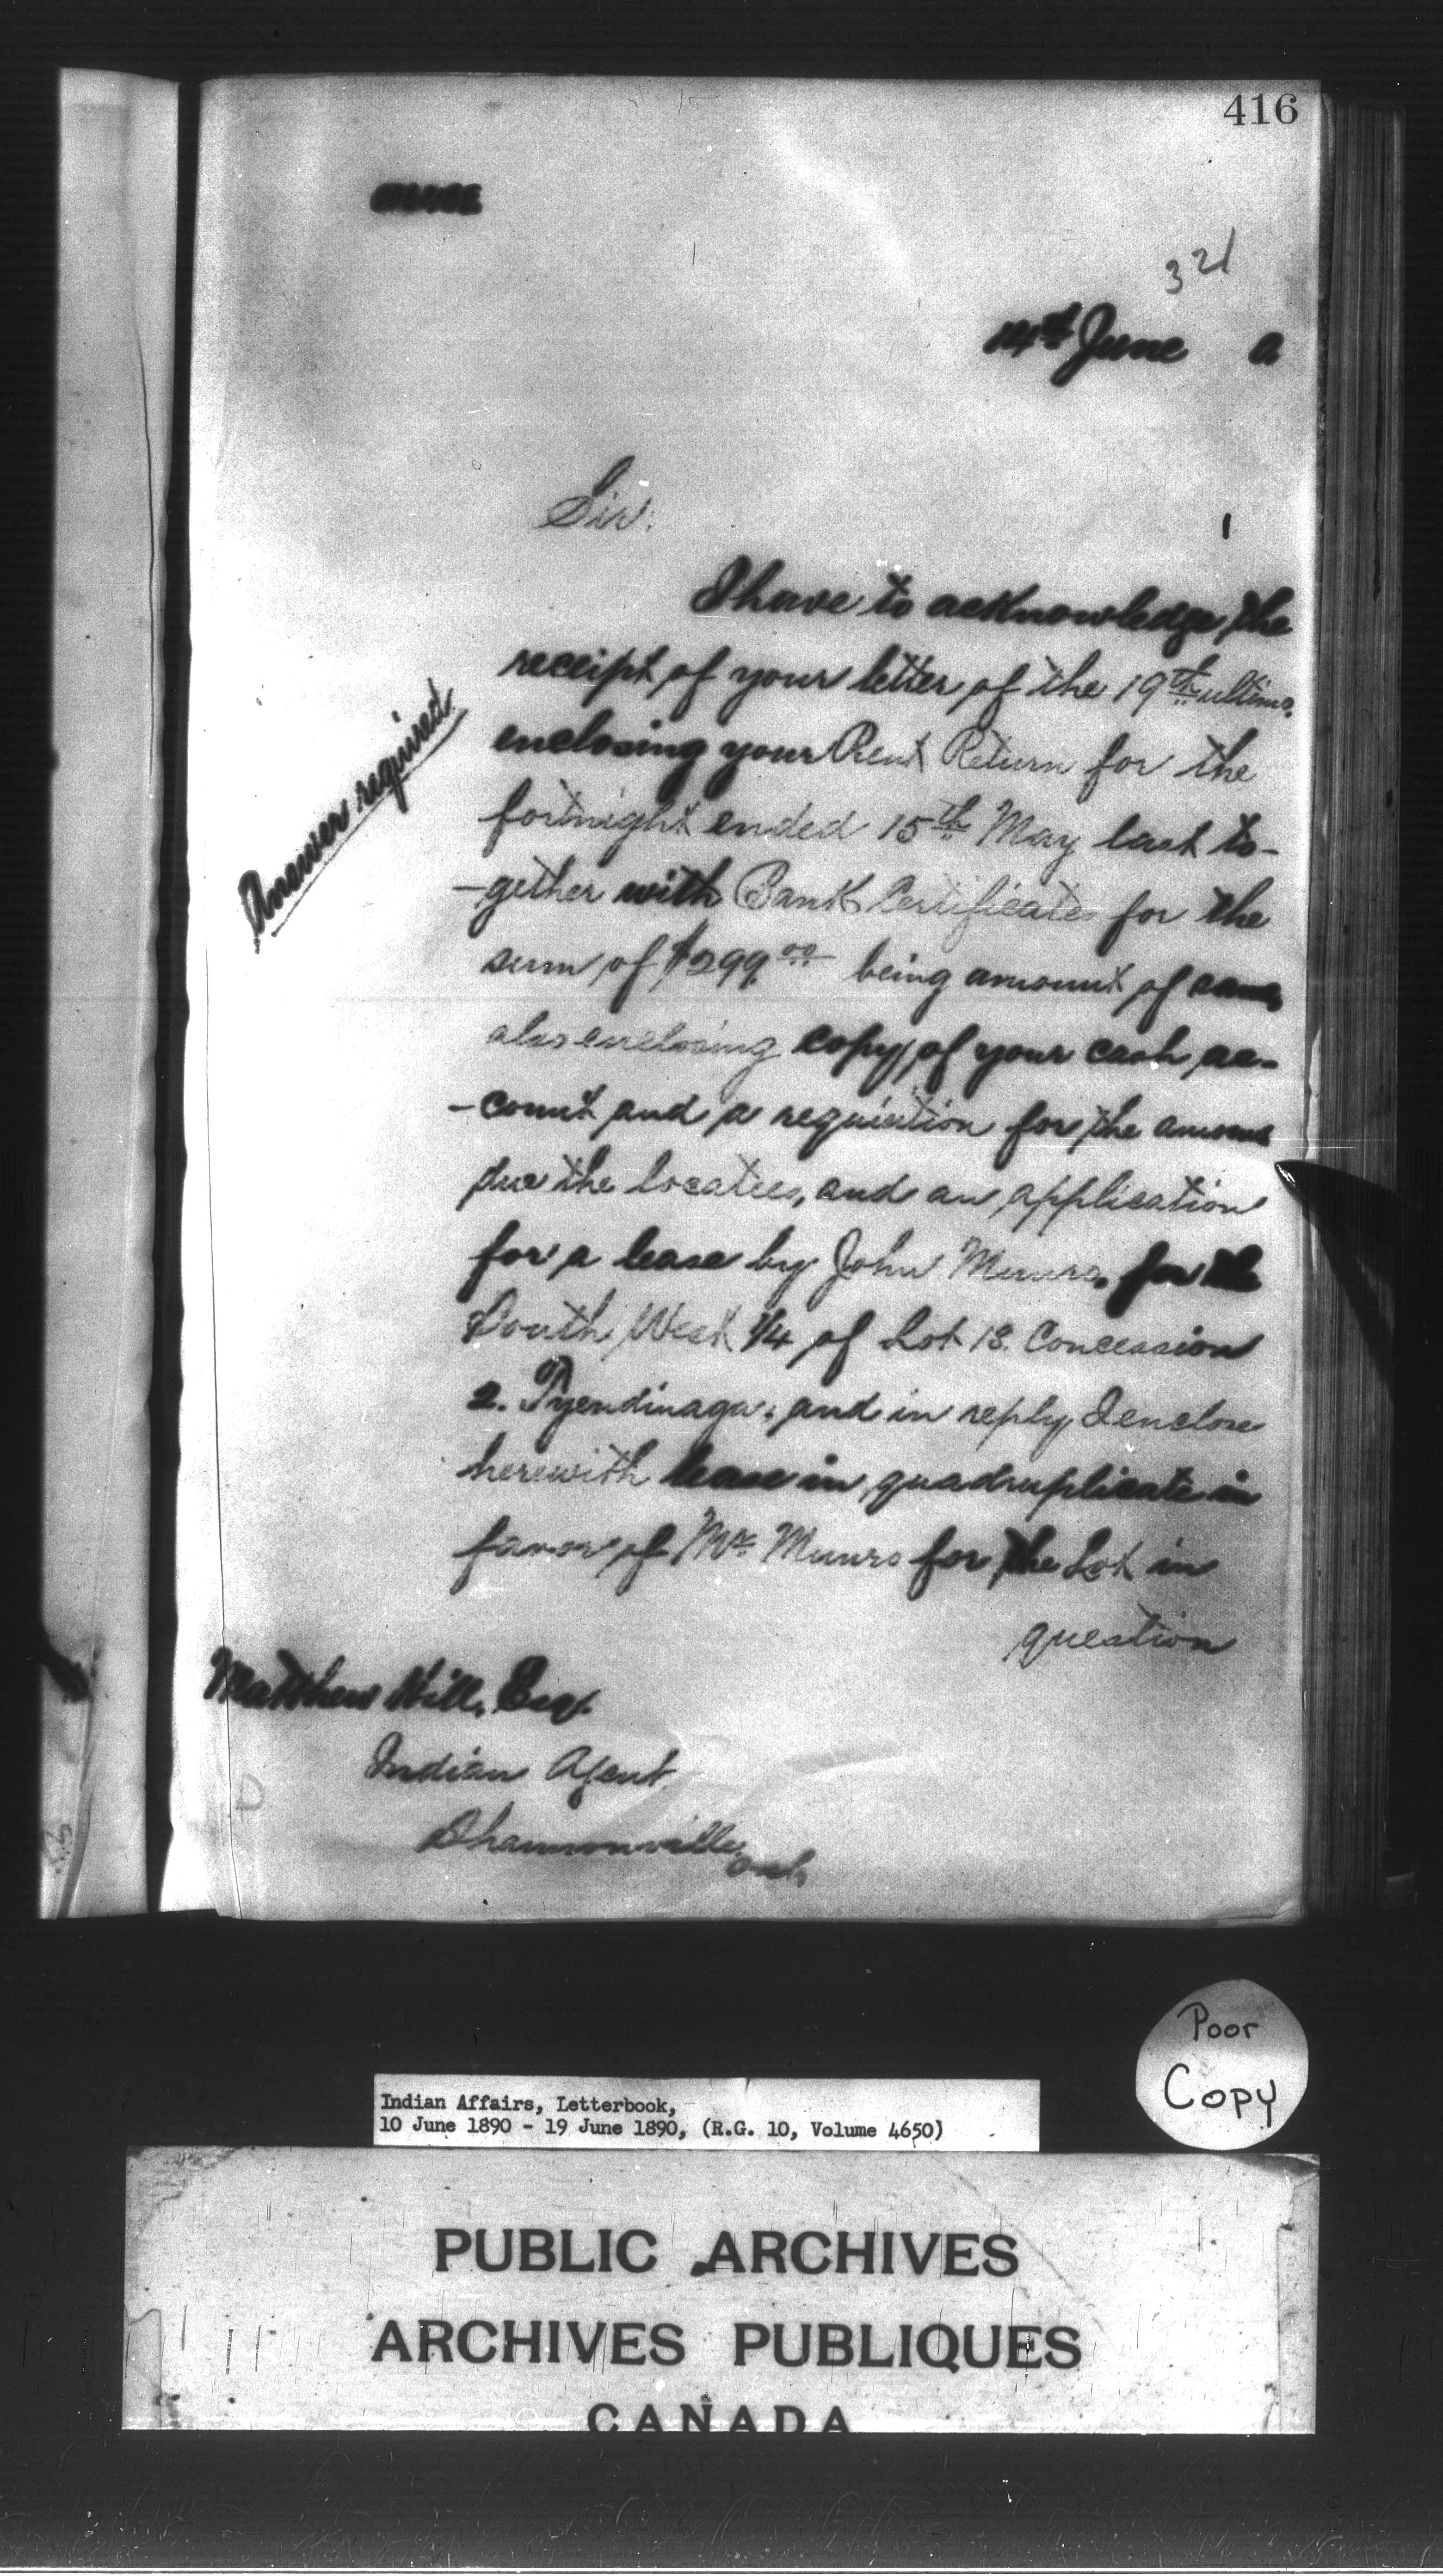 416
321
14th June 0
Sir.
I have to acknowledge the
receipt of your letter of the 19th ultimo.
enclosing your Rent Return for the
fortnight ended 15th May last to-
-gether with Bank Certificate for the
sum of $299.00 being amount of same
also enclosing copy of your cash ac-
-count and a requisition for the amount
due the locatees, and an application
for a lease by John Munro, for the
South West 1/4 of Lot 18. Concession
2. Tyendinaga; and in reply I enclose
herewith lease in quadruplicate in
favor of Mr Munro for the Lot in
question
Answer required
Matthew Hill, Esq.
Indian Agent
Shannonville
Ont.
Poor
Copy
Indian Affairs, Letterbook,
10 June 1890 - 19 June 1890, (R.G. 10, Volume 4650)
PUBLIC ARCHIVES
ARCHIVES PUBLIQUES
CANADA